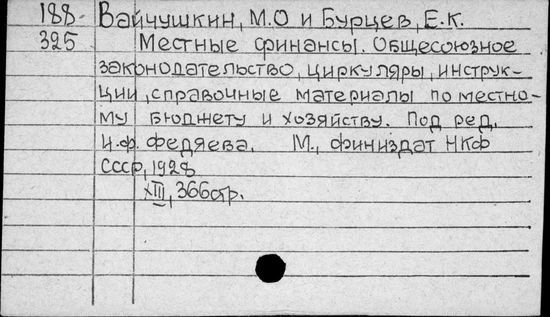 188 Вайчушкин, М.О и Бурцев, Е.К.
325 Местные финансы. Общесоюзное
законодательство, циркуляры, инструк-
ции, справочные материалы по местно-
му бюджету и хозяйству. Под ред.
И.Ф. Федяева. М., Финиздат НКФ
СССР, 1928
XIII, 366стр.